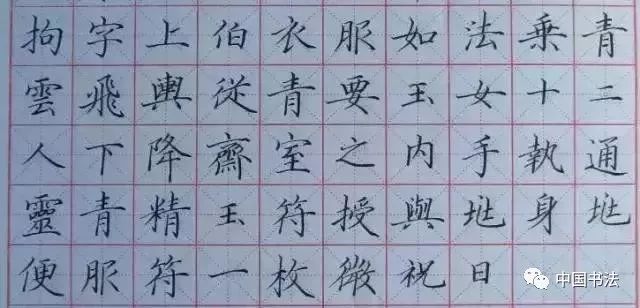 拘字上伯衣服如法乗青
雲飛輿從青要玉女十二
人下降齋室之内手執通
靈青精玉符授與兆身兆
便服符一枚微祝曰
中国书法